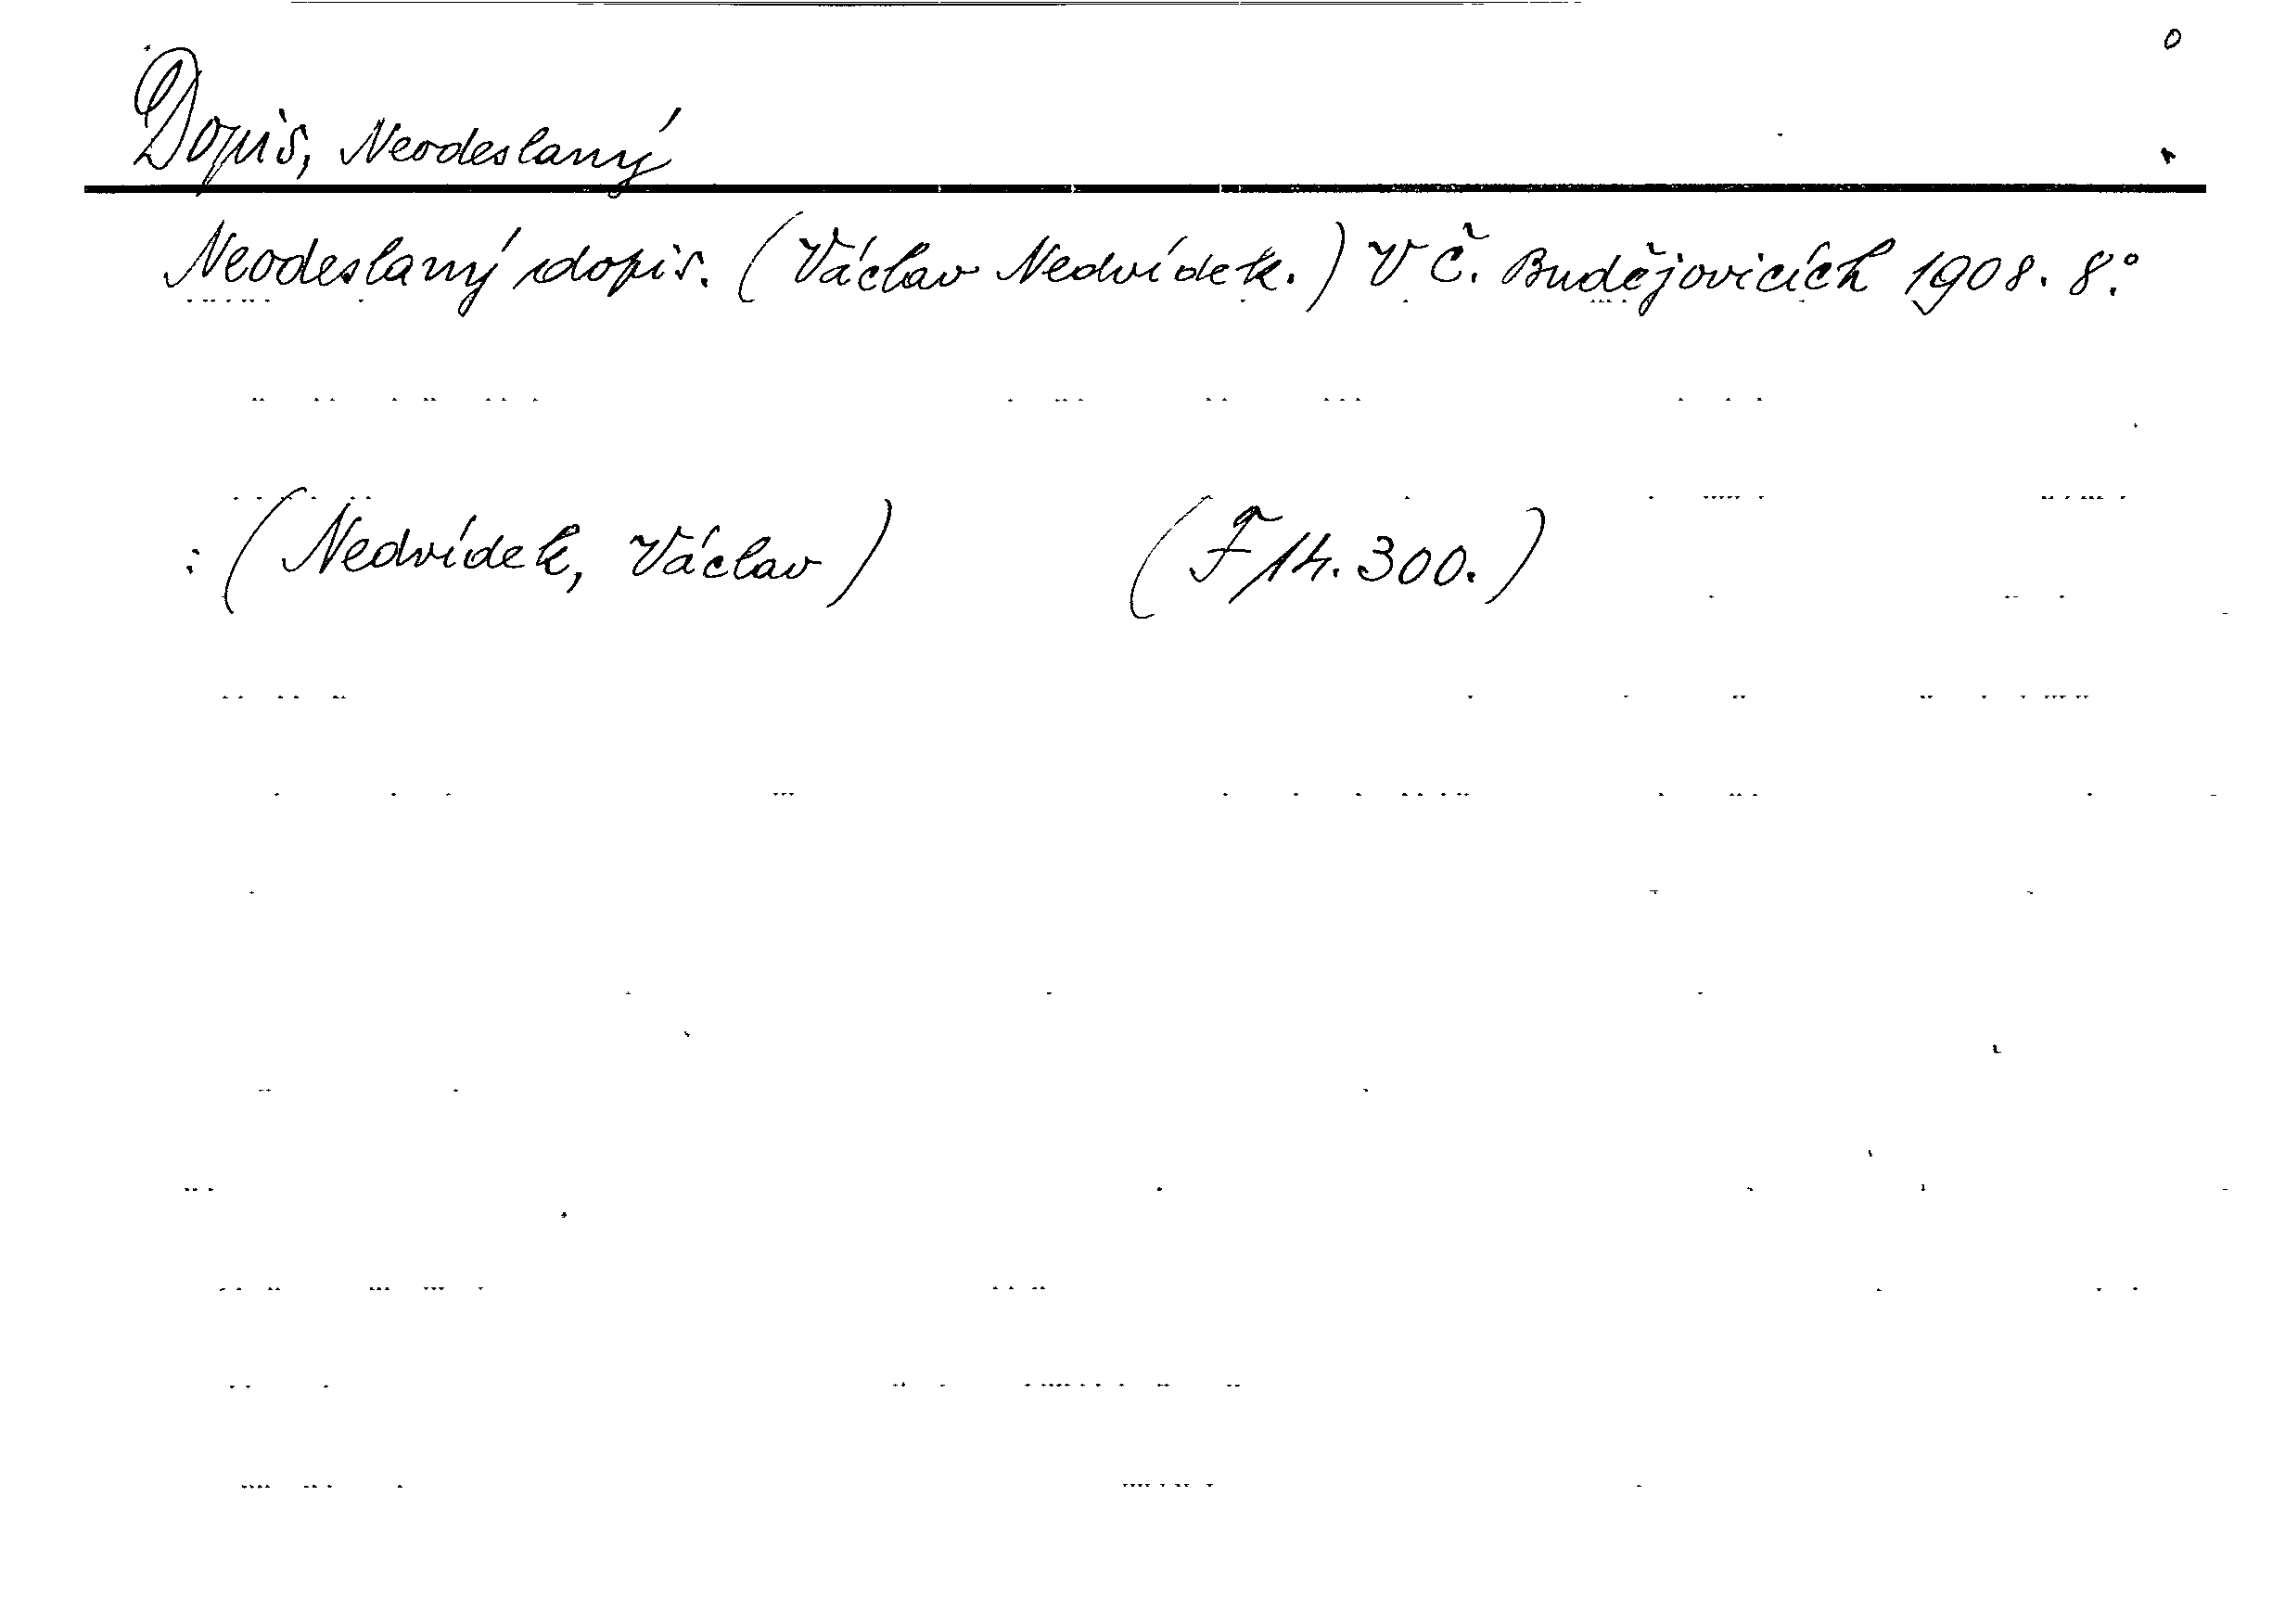 Dopis, Neodeslaný
Neodeslaný dopis. (Václav Nedvídek.) V Č. Budějovicích 1908. 8.°
: (Nedvídek, Václav) (F 14.300.)